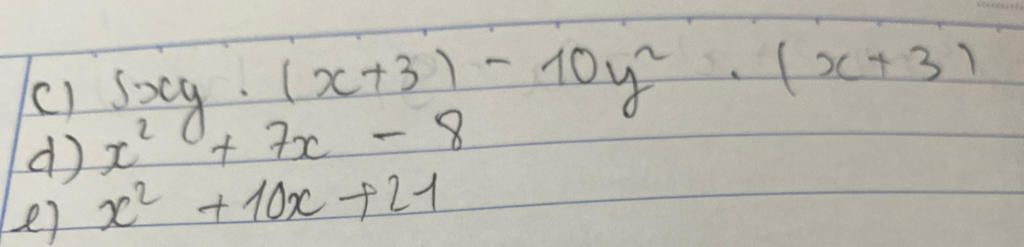 c) 5xy . (x+3) - 10y² . (x+3)
d) x² + 7x - 8
e) x² + 10x + 21